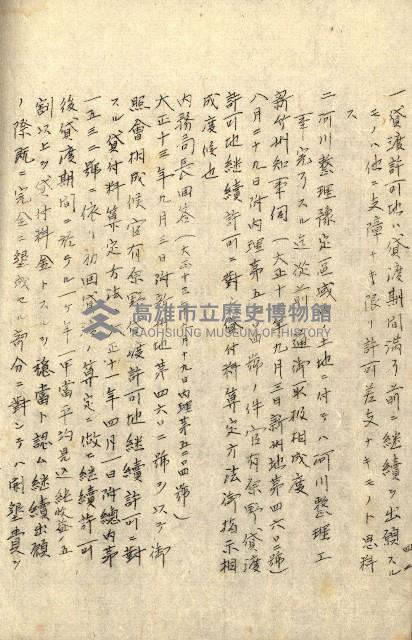 一貸渡許可地ハ貸渡期間満了前ニ継続ヲ出願スル
モノハ他ニ支障ナキ限リ許可差支ナキモノト思料
ス
二河川整理豫定区域ノ土地ニ付テハ河川整理工
事完了スル迄従前ノ通御取扱相成度
新竹州知事伺(大正十三年九月三日新州地第四六〇二號)
八月二十九日附内理第五二〇四號ノ件官有原野貸渡
許可地継續許可ニ對スル貸付料算定方法御指示相
成度候也
内務局長回答(大正十三年 月十九日内理第五二〇四號)
大正十三年九月三日附新州地第四六〇二號ヲ以テ御
照會相成候官有原野貸渡許可地継續許可ニ對
スル貸付料算定方法ハ大正十年四月一日附總内第
一五三二號ニ依リ初回貸渡ノ算定ニ倣ヒ継續許可
後貸渡期間ニ於ケル一ケ年一甲當平均見込純收益ノ五
割以上ヲ貸付料金トスルヲ穏當ト認ム継續出願
ノ際既ニ完全ニ墾成セル部分ニ對シテハ開墾費ヲ
高雄市立歷史博物館
KAOHSIUNG MUSEUM OF HISTORY